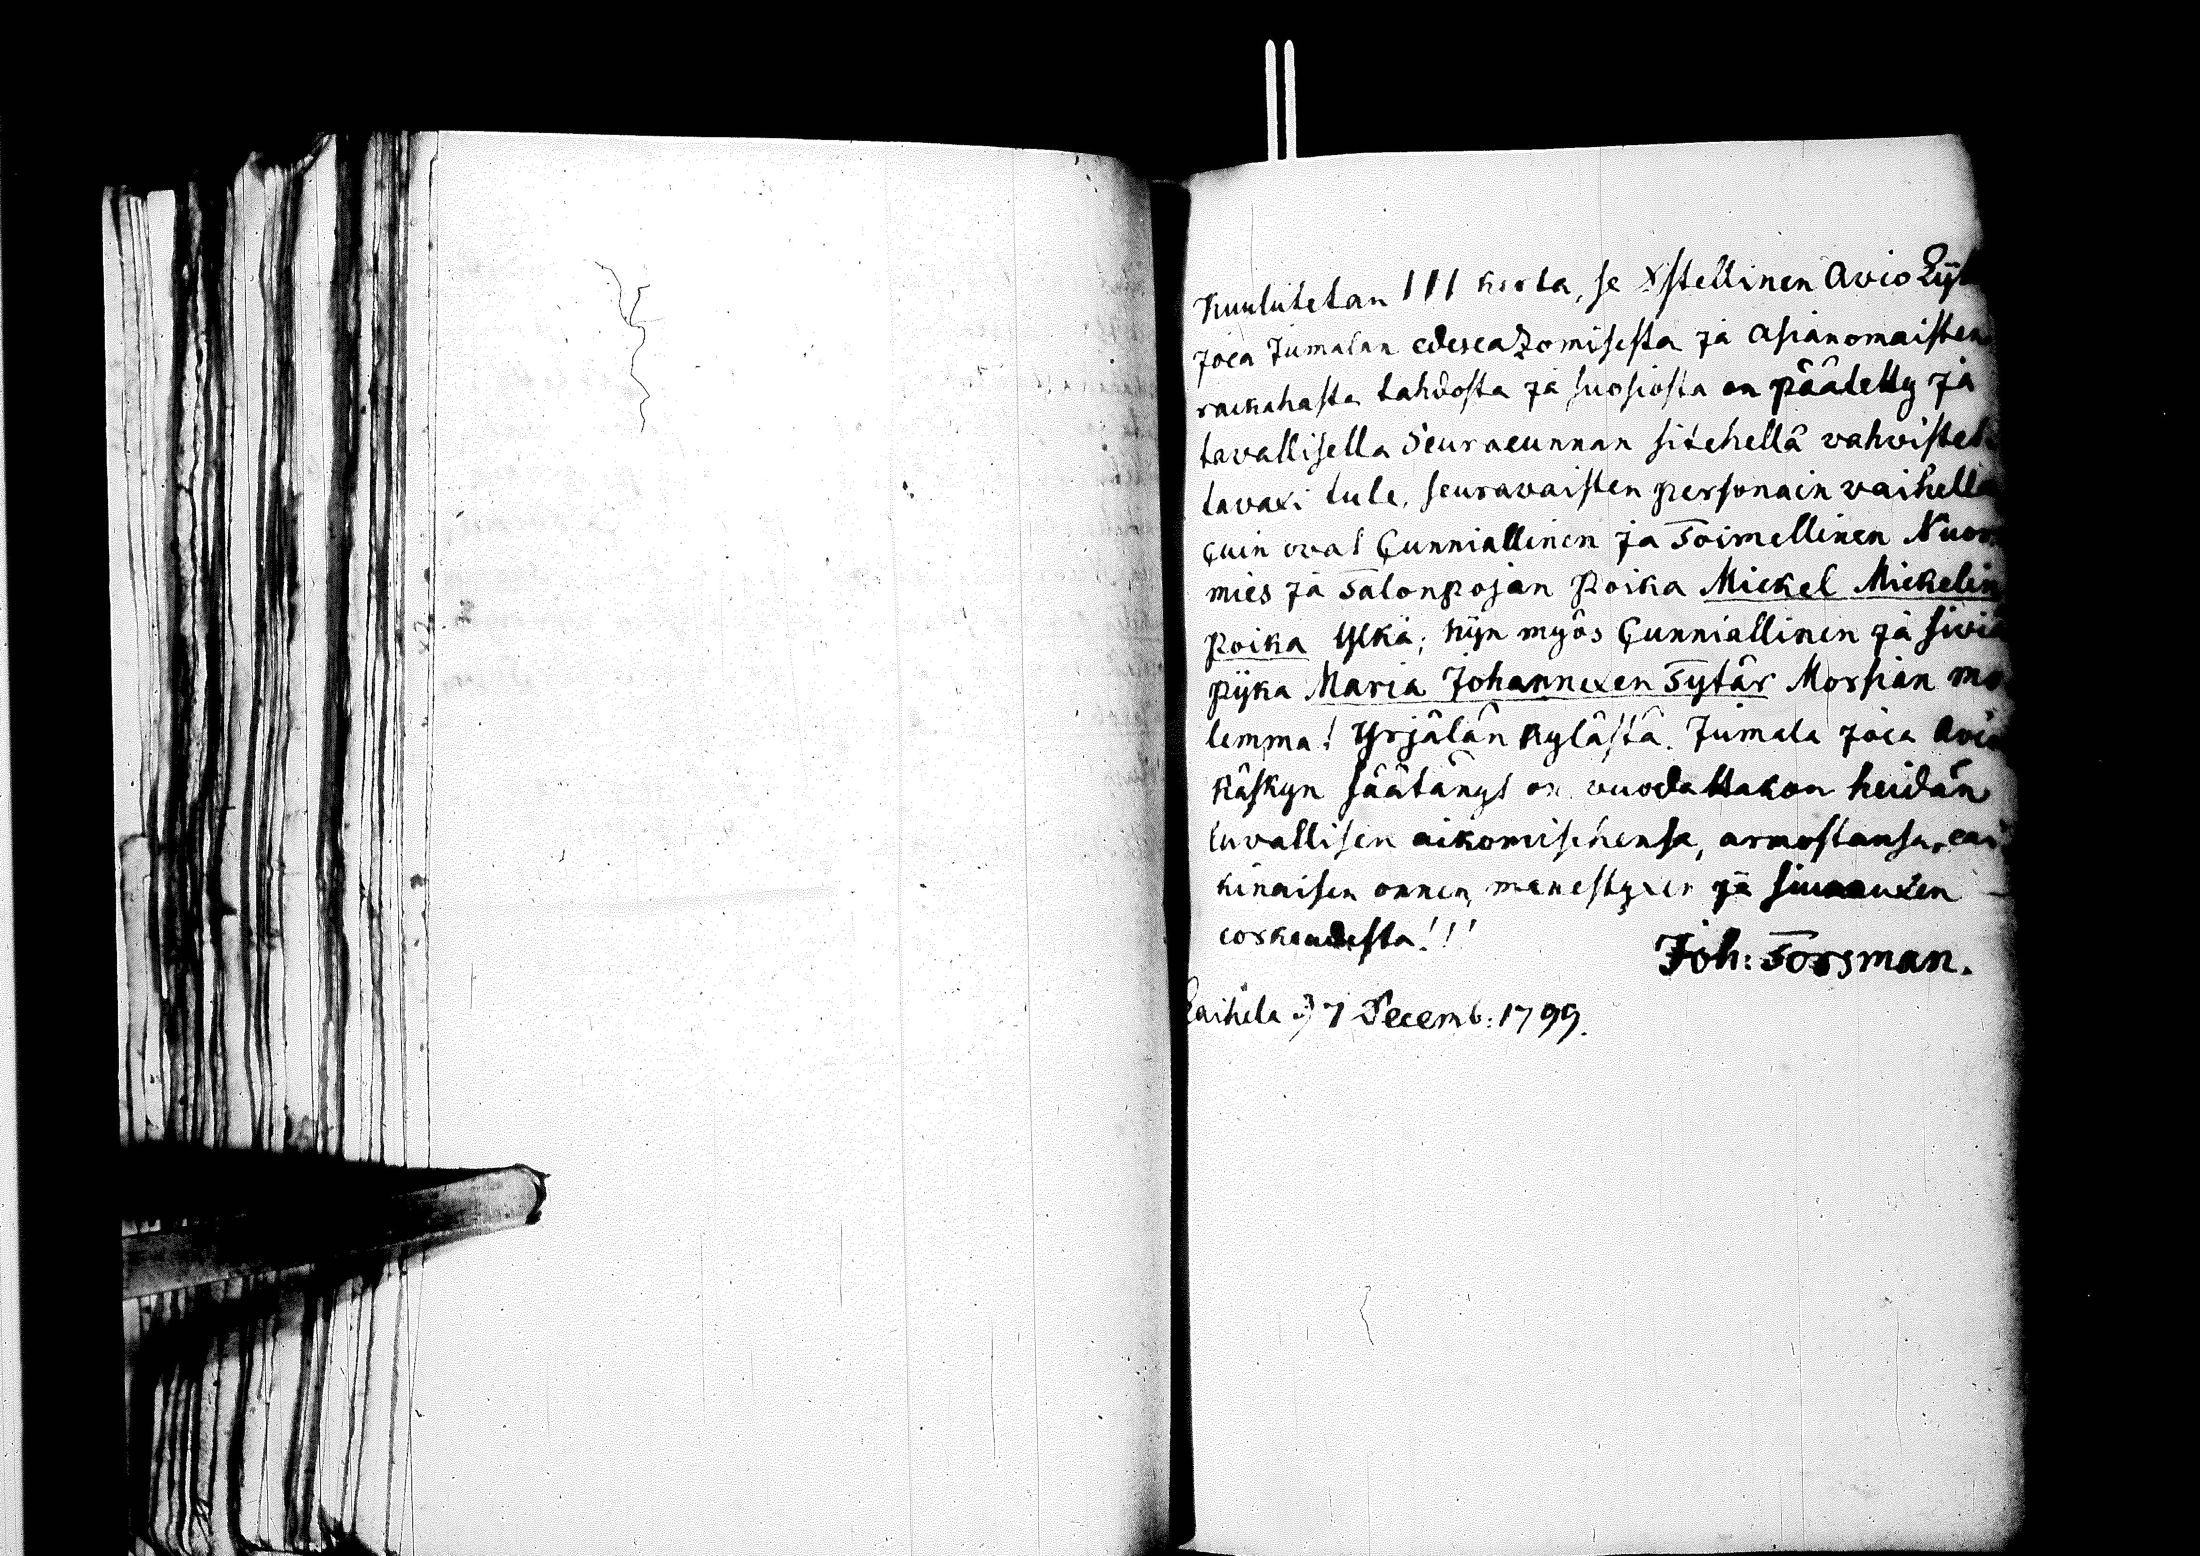 Kuulutetan III kerta, se Xstellinen Avio
joca Jumalan edescazomisesta ja asianomaisten
rackahasta tahdosta ja suosiosta on päätetty ja
tavallisella Seuracunnan sitehellä vahvistet
tavaxi tule, seuravaisten personain vaihella
cuin ovat Cunniallinen ja Toimellinen Nuor
mies ja Talonpojan Poika Mickel Mickelin
Poika Ylkä; nijn myös Cunniallinen ja siviä
pijka Maria Johannexen Tytär Morsian mo
lemmat Yrjälän kylästä. Jumala joca Avio
käskyn säätänyt on vuodattakon heidän
luvallisen aikomisehensa, armostansa, cai
kinaisen onnen, menestyxen ja siunauxen
corkeudesta!!!
Joh: Forsman.
Laihela d. 7 Decemb: 1799.